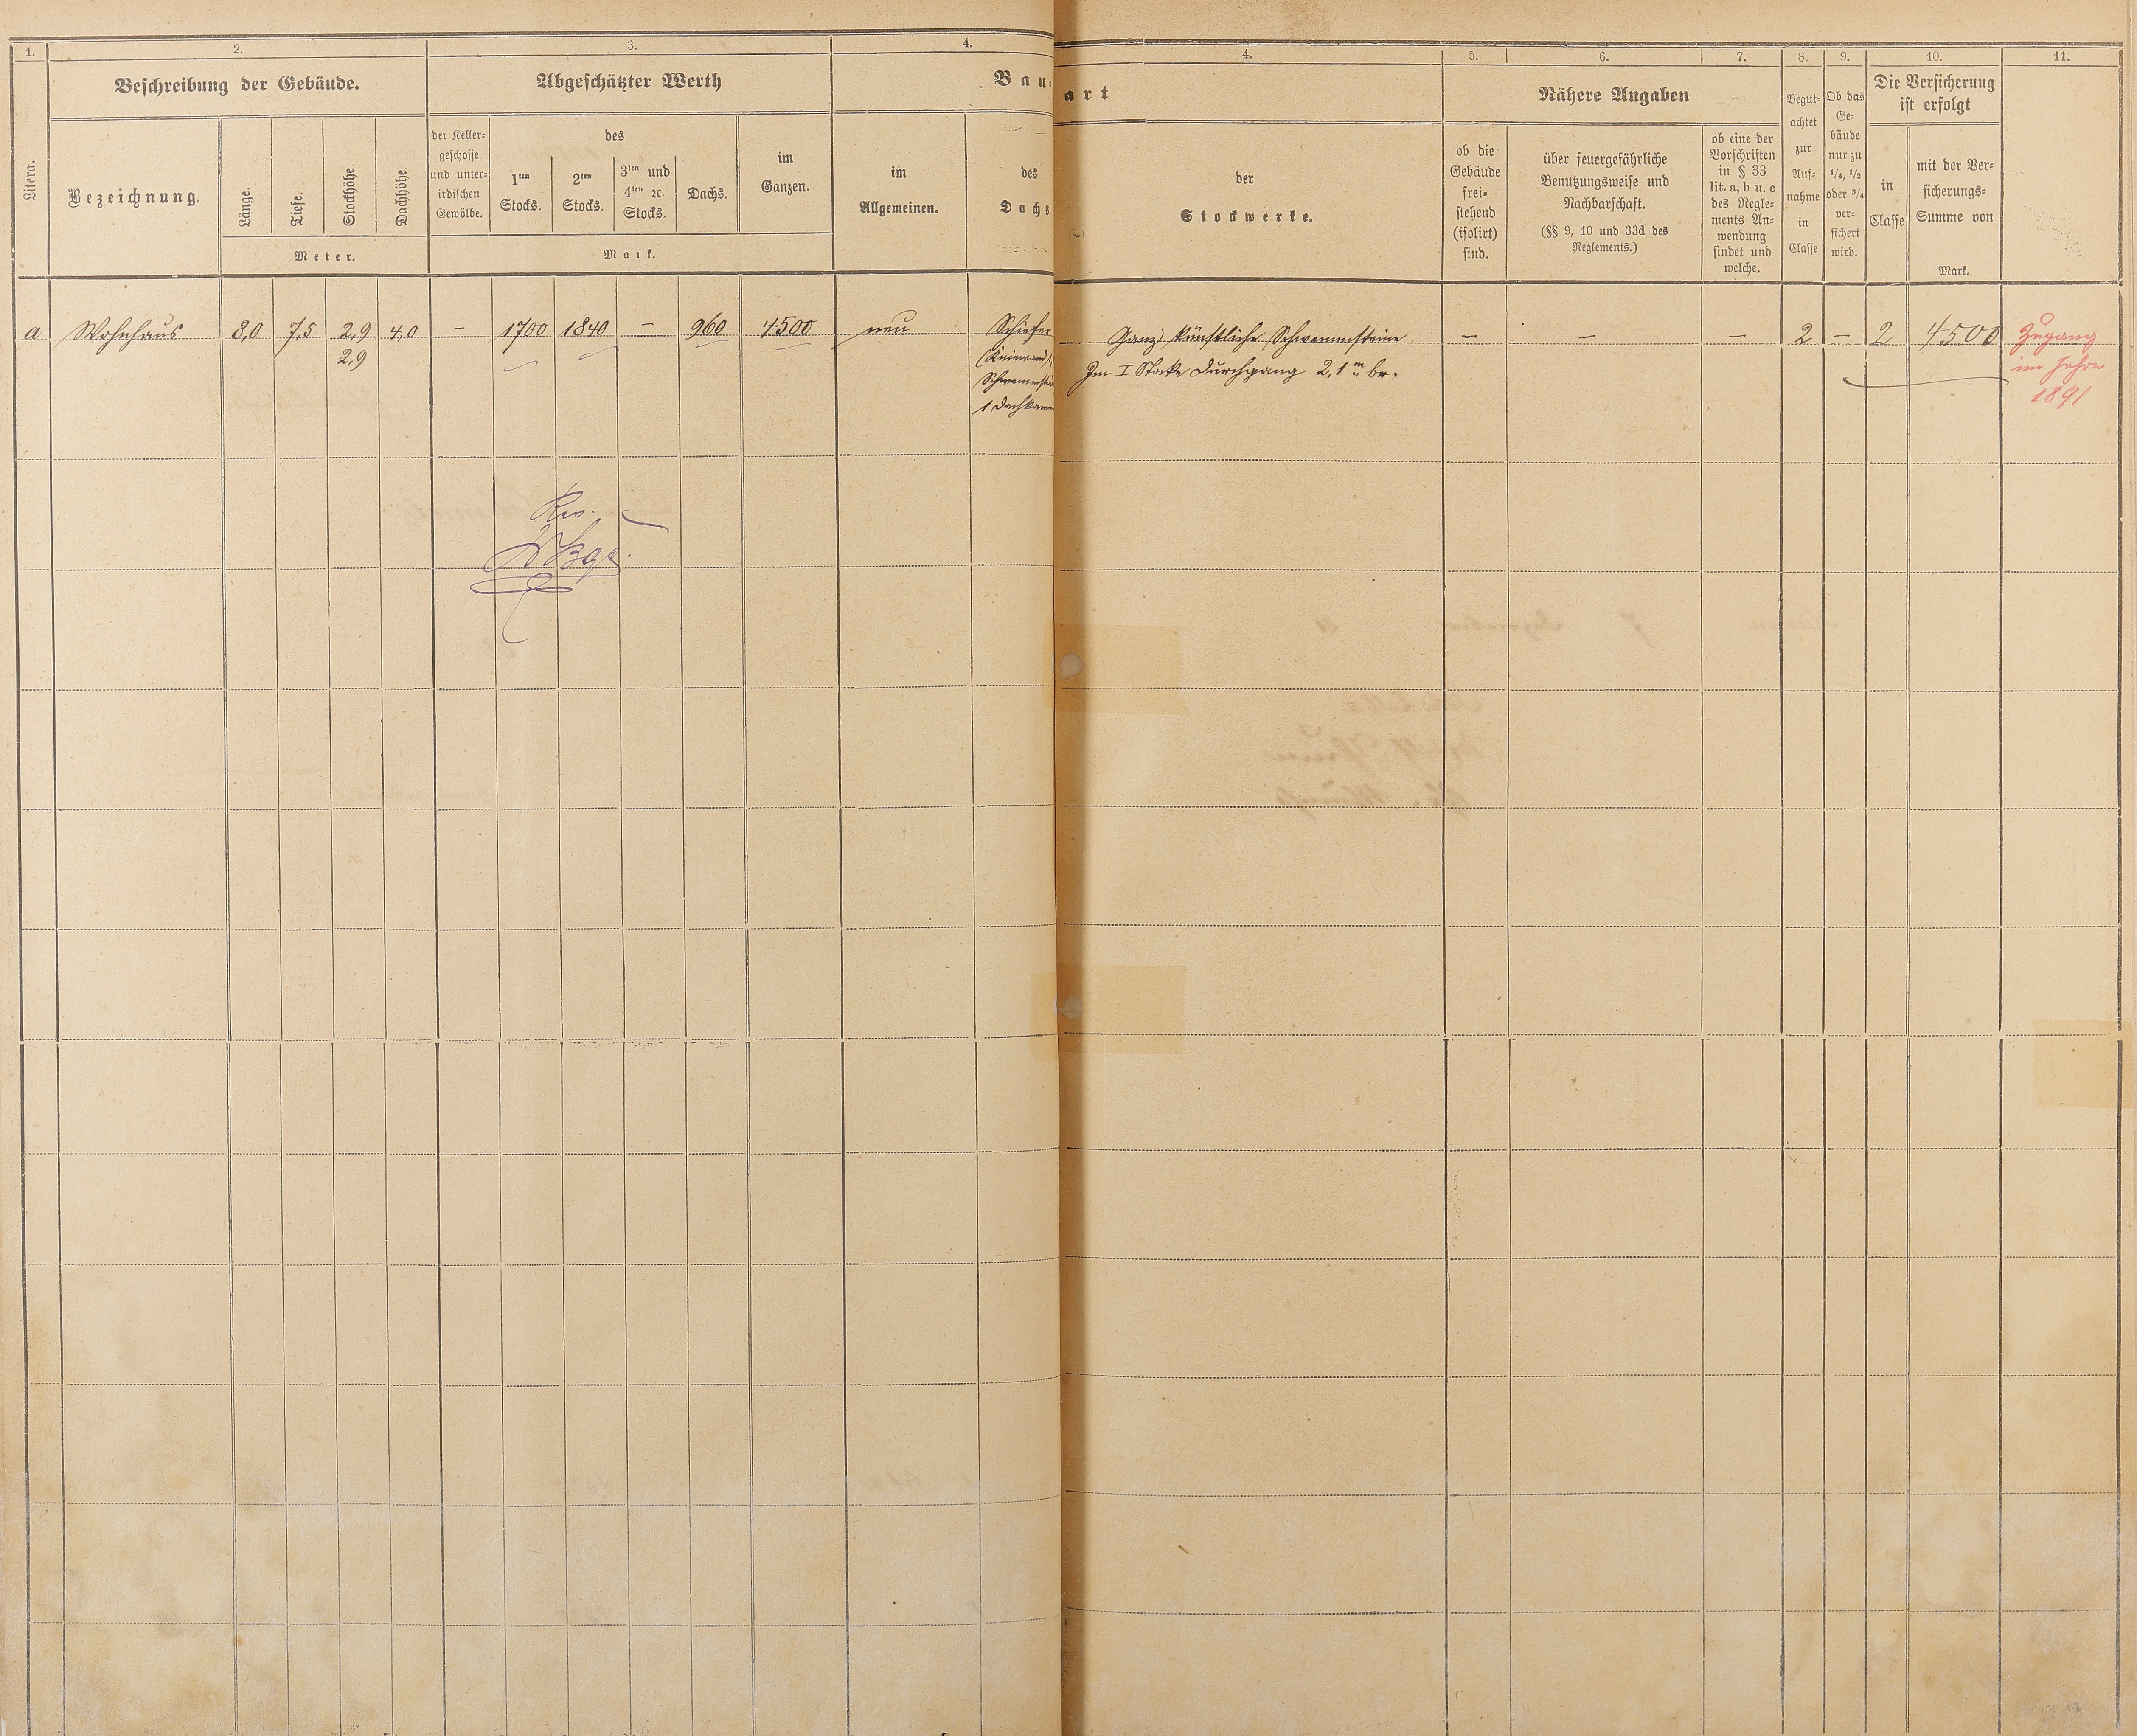 1. 2. 3. 4. 4. 5. 6. 7. 8. 9. 10. 11.
Litera.
Beschreibung der Gebäude.
Bezeichnung.
Länge.
Tiefe.
Stockhöhe
Dachhöhe
Meter.
Abgeschätzter Werth
der Keller-
geschosse
und unter-
irdischen
Gewölbe.
des
1ten
Stocks.
2ten
Stocks.
3ten und
4ten ꝛc.
Stocks.
Dachs.
im
Ganzen.
Mark.
Bau-
im
Allgemeinen.
des
Dachs.
art
der
Stockwerke.
Nähere Angaben
ob die
Gebäude
frei-
stehend
(isolirt)
sind.
über feuergefährliche
Benutzungsweise und
Nachbarschaft.
(§§ 9, 10 und 33d des
Reglements.)
ob eine der
Vorschriften
in § 33
lit. a, b u. c
des Regle-
ments An-
wendung
findet und
welche.
Begut-
achtet
zur
Auf-
nahme
in
Classe
Ob das
Ge-
bäude
nur zu
1/4, 1/2
oder 3/4
ver-
sichert
wird.
Die Versicherung
ist erfolgt
in
Classe
mit der Ver-
sicherungs-
Summe von
Mark.
a Wohnhaus 8,0 7,5 2,9 4,0 — 1700 1840 — 960 4500 neu Schiefer Ganz künstliche Schwemmsteine — — — 2 — 2 4500 Zugang
2,9 (Kniewand Im I Stocke Durchgang 2,1 m br. im Jahre
1 Dachkam 1891
Rev.